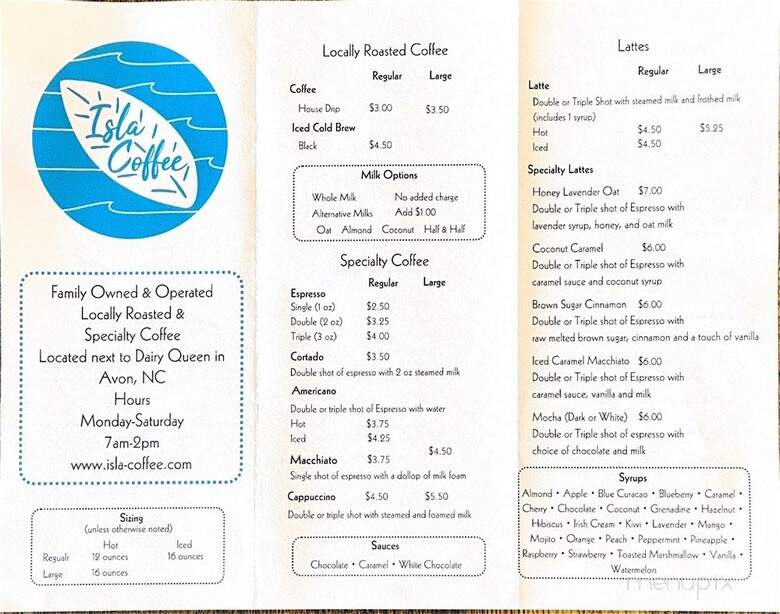 Isla
Coffee
Family Owned & Operated
Locally Roasted &
Specialty Coffee
Located next to Dairy Queen in
Avon, NC
Hours
Monday-Saturday
7am-2pm
www.isla-coffee.com
Sizing
(unless otherwise noted)
Hot Iced
Regualr 12 ounces 16 ounces
Large 16 ounces
Locally Roasted Coffee
Regular Large
Coffee
House Drip $3.00 $3.50
Iced Cold Brew
Black $4.50
Milk Options
Whole Milk No added charge
Alternative Milks Add $1.00
Oat Almond Coconut Half & Half
Specialty Coffee
Regular Large
Espresso
Single (1 oz) $2.50
Double (2 oz) $3.25
Triple (3 oz) $4.00
Cortado $3.50
Double shot of espresso with 2 oz steamed milk
Americano
Double or triple shot of Espresso with water
Hot $3.75
Iced $4.25
$4.50
Macchiato $3.75
Single shot of espresso with a dollop of milk foam
Cappuccino $4.50 $5.50
Double or triple shot with steamed and foamed milk
Sauces
Chocolate • Caramel • White Chocolate
Lattes
Regular Large
Latte
Double or Triple Shot with steamed milk and frothed milk
(includes 1 syrup)
Hot $4.50 $5.25
Iced $4.50
Specialty Lattes
Honey Lavender Oat $7.00
Double or Triple shot of Espresso with
lavender syrup, honey, and oat milk
Coconut Caramel $6.00
Double or Triple shot of Espresso with
caramel sauce and coconut syrup
Brown Sugar Cinnamon $6.00
Double or Triple shot of Espresso with
raw melted brown sugar, cinnamon and a touch of vanilla
Iced Caramel Macchiato $6.00
Double or Triple shot of Espresso with
caramel sauce, vanilla and milk
Mocha (Dark or White) $6.00
Double or Triple shot of espresso with
choice of chocolate and milk
Syrups
Almond • Apple • Blue Curacao • Blueberry • Caramel •
Cherry • Chocolate • Coconut • Grenadine • Hazelnut •
Hibiscus • Irish Cream • Kiwi • Lavender • Mango •
Mojito • Orange • Peach • Peppermint • Pineapple •
Raspberry • Strawberry • Toasted Marshmallow • Vanilla •
Watermelon
menupix